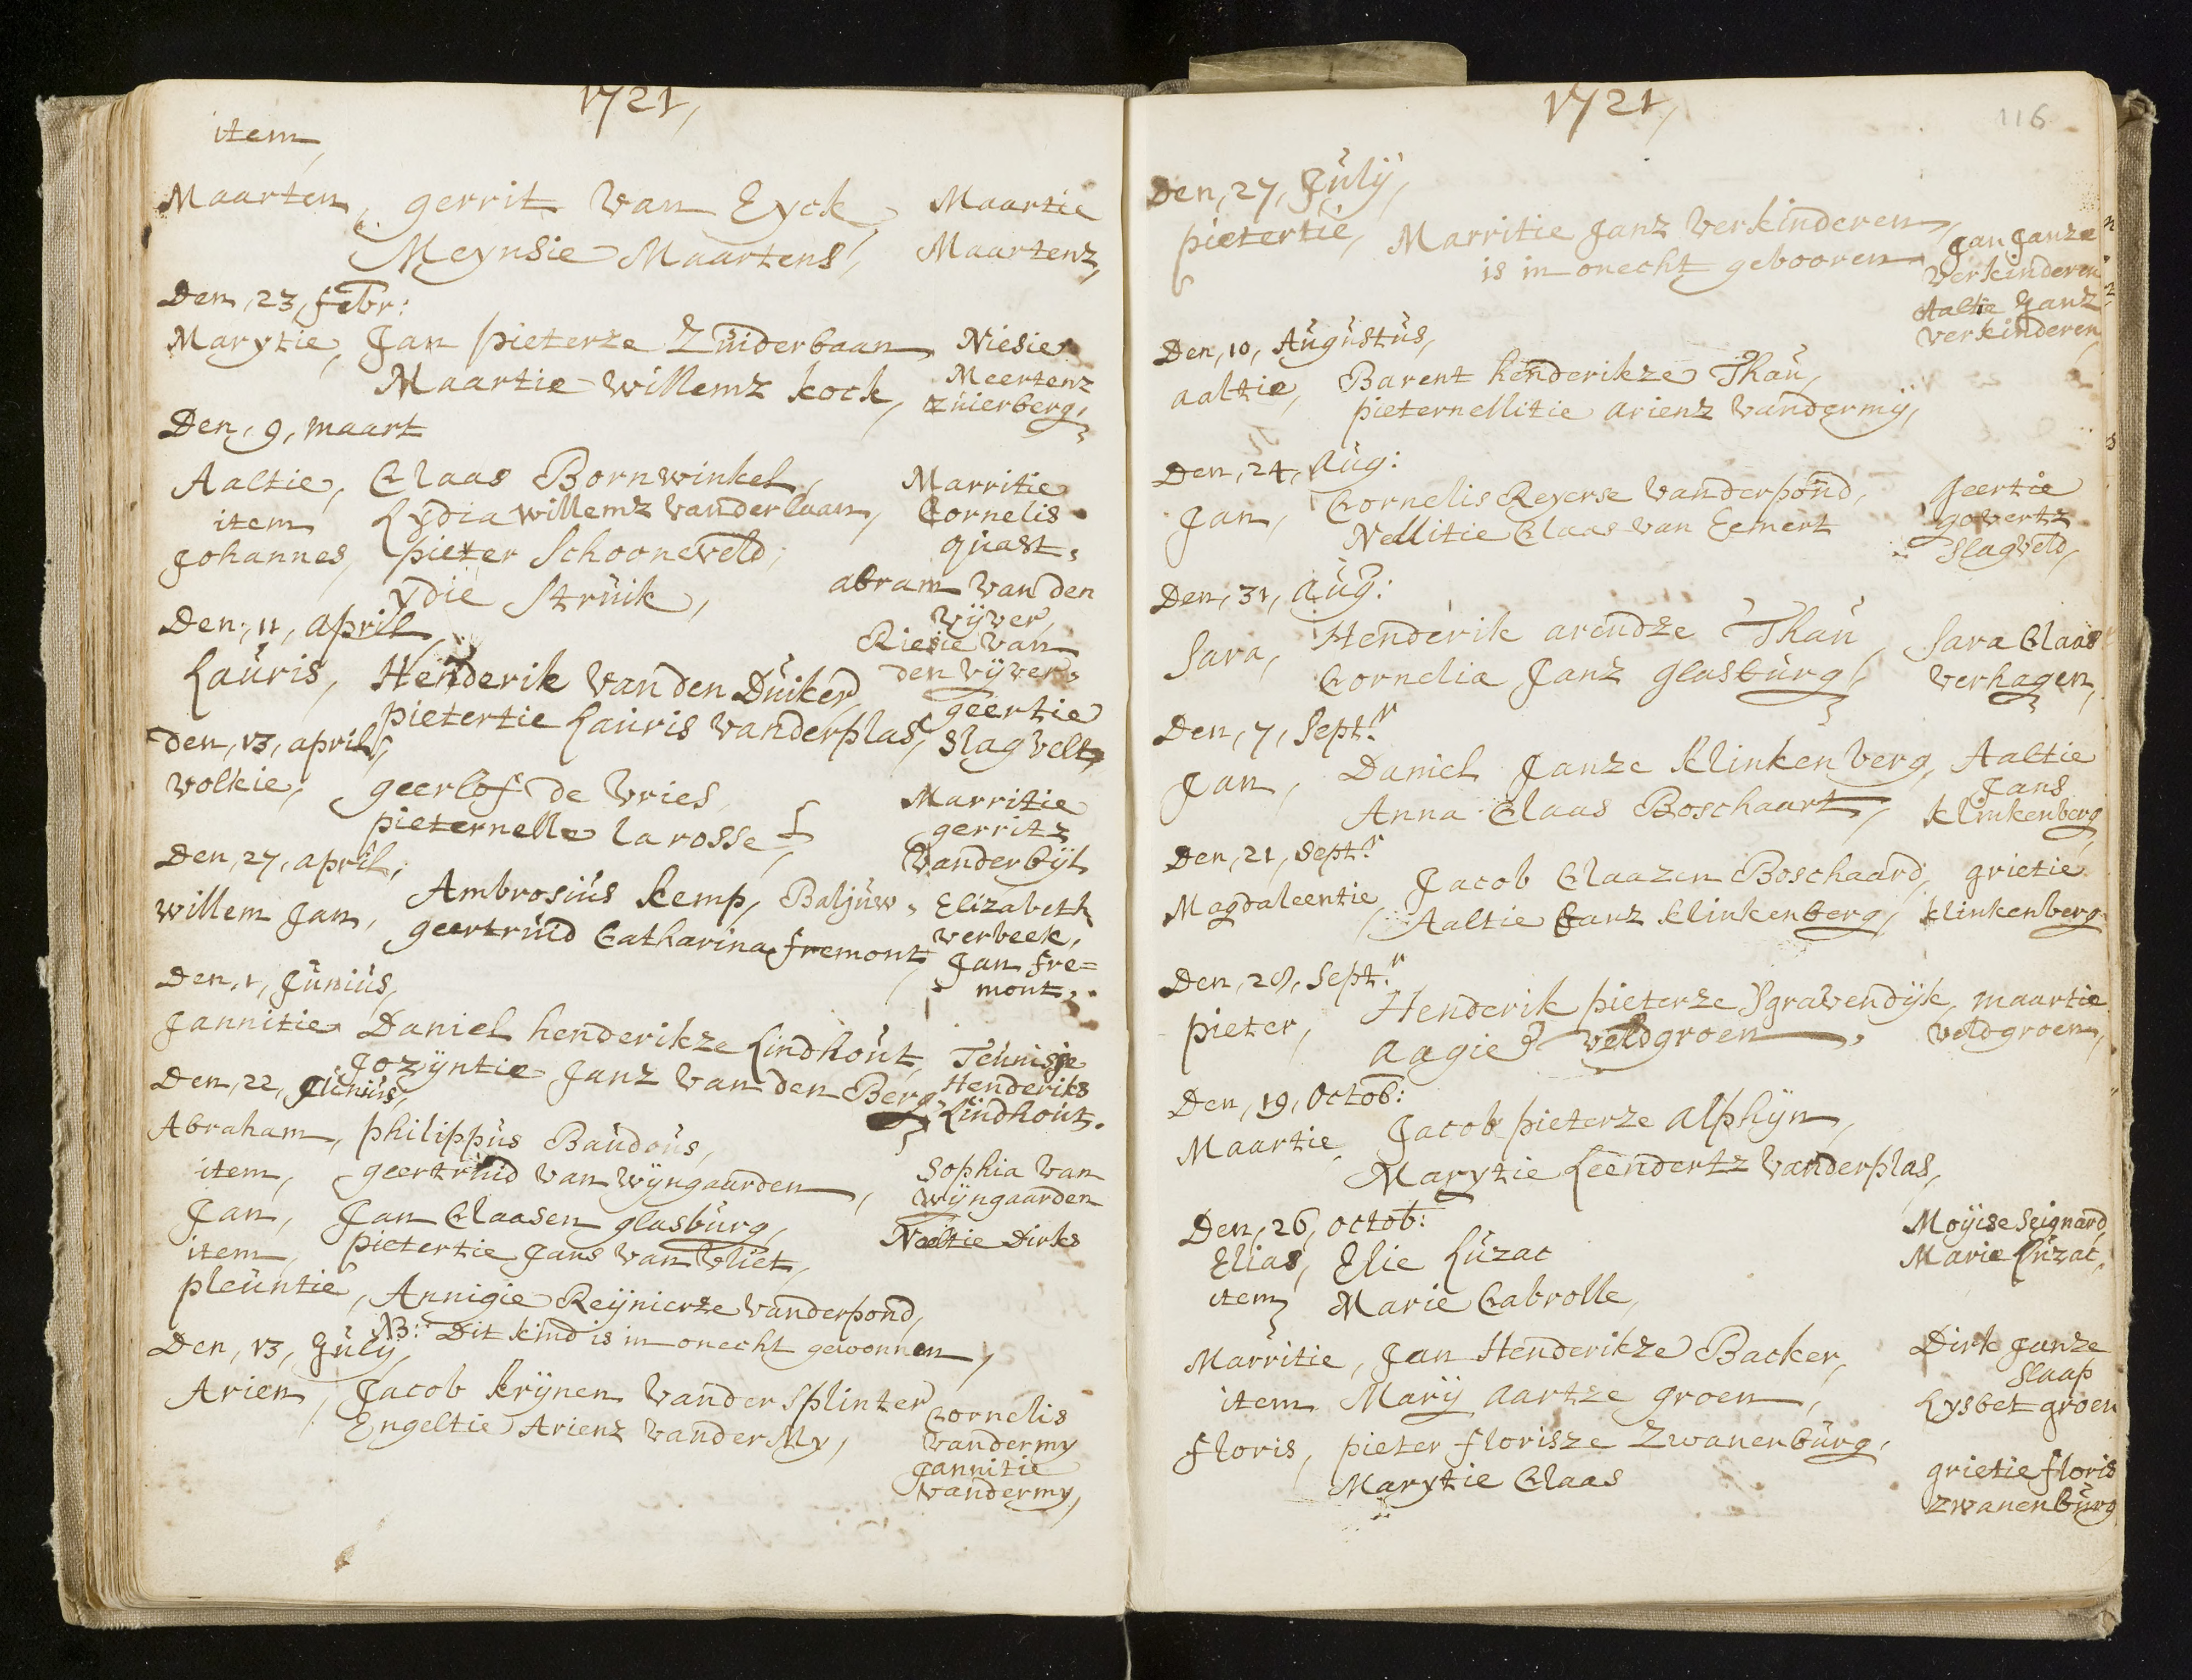 1721,
item,
Maarten, gerrit van Eyck, Maartie
Meynsie Maartens, Maartenz,
Den, 23, febr:
Marytie, Jan pieterze Zuiderbaan, Niesie
Maartie willemz kock, Meertenz
zuierberg,
Den, 9, maart
Aaltie, Claas Bornwinkel, Marritie
item Lydia willemz vanderlaan, Cornelis
Johannes, pieter Schooneveld, quast,
ydie Struik, abram van den
vyver,
Den, 11, april, Riesie van
den vyver,
Lauris, Henderik van den Duiker, geertie
pietertie Lauris vanderplas, slagvelt,
den, 13, april,
volkie, geerlof de vries, Marritie
pieternelle la rosse, gerritz
vanderbyl
Den, 27, april,
willem Jan, Ambrosius kemp, Baljuw, Elizabeth
geertruid Catharina fremont, verbeek,
Jan fre=
mont,
Den, 1, Junius,
Jannitie Daniel henderikze Lindhout, Teunisje
Jozyntie Janz van den Berg, Henderiks
Lindhout.
Den, 22, Junius,
Abraham, philippus Baudous,
item, geertruid van wyngaarden, Sophia van
wyngaarden
Jan, Jan Claasen glasburg,
item, pietertie Jans van vliet, Neeltie Dirks
pleuntie, Annigie Reynierze vanderpond,
NB: Dit kind is in onecht gewonnen,
Den, 13, July,
Arien, Jacob krynen vander Splinter
Engeltie Arienz vander My, Cornelis
vandermy
Jannitie
vandermy,
1721,
116
Den, 27, July,
pietertie, Marritie Janz verkinderen, Jan Janze
is in onecht gebooren verkinderen
Aaltie Janz
verkinderen,
Den, 10, Augustus,
aaltie, Barent henderikze Thau,
pieternellitie arienz vandermy,
Den, 24, Aug:
Jan, Cornelis Reyerse vanderpond, geertie
Nellitie Claas van Eemert govertz
slagveld,
Den, 31, Aug:
Sara, Henderik arendze Thau, Sara Claas
Cornelia Janz glasburg, verhagen,
Den, 7, Septr.
Jan, Daniel Janze klinkenberg, Aaltie
Jans
Anna Claas Boschaart, klinkenberg,
Den, 21, Septr.
Magdaleentie, Jacob Claazen Boschaard, grietie
Aaltie Janz klinkenberg, klinkenberg
Den, 28, Septr.
pieter, Henderik pieterze Sgravendyk, maartie
aagie veldgroen, veldgroen,
Den, 19, Octob:
Maartie, Jacob pieterze alphyn,
Marytie Leendertz vanderplas,
Den, 26, octob: Moyise Seignard,
Elias, Elie Luzac Marie Luzac,
item, Marie Cabrolle,
Marritie, Jan Henderikze Backer, Dirk Janze
Slaap
item Mary aartze groen, Lysbet groen
floris, pieter florisze Zwanenburg,
Marytie Claas grietie floris
zwanenburg